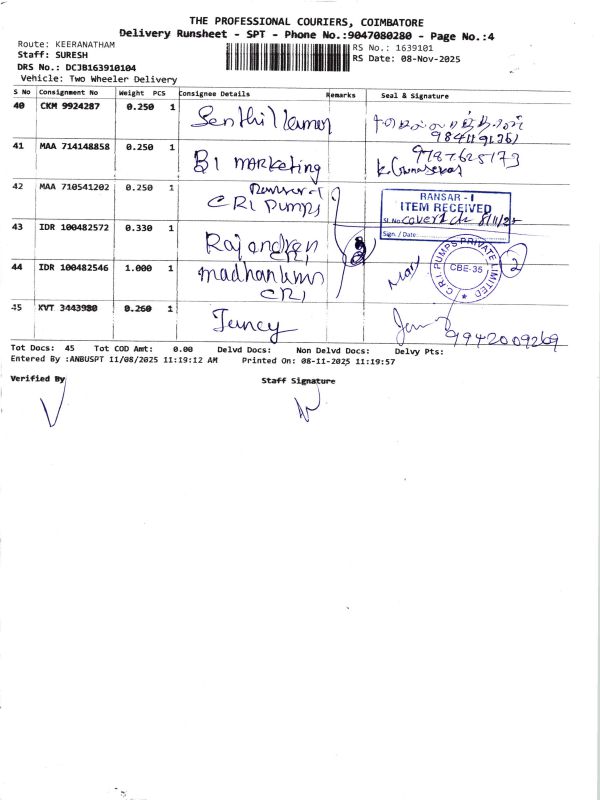 THE PROFESSIONAL COURIERS, COIMBATORE
Delivery Runsheet - SPT - Phone No.:9047080280 - Page No.:4
Route: KEERANATHAM
Staff: SURESH
DRS No.: DCJB163910104
Vehicle: Two Wheeler Delivery
RS No.: 1639101
RS Date: 08-Nov-2025
S No Consignment No Weight PCS Consignee Details Remarks Seal & Signature
40 CKM 9924287 0.250 1 Senthil Kumar
41 MAA 714148858 0.250 1 B1 marketing 9787625173
42 MAA 710541202 0.250 1 Ransar-1
CRI Pumps
RANSAR - I
ITEM RECEIVED
Sl. No.
Sign. / Date:
43 IDR 100482572 0.330 1 Rajendren
CRI
44 IDR 100482546 1.000 1 madhankumar
CRI
C.R.I PUMPS PRIVATE LIMITED
CBE-35
2
45 KVT 3443980 0.260 1 Jency
9942009269
Tot Docs: 45 Tot COD Amt: 0.00 Delvd Docs: Non Delvd Docs: Delvy Pts:
Entered By :ANBUSPT 11/08/2025 11:19:12 AM Printed On: 08-11-2025 11:19:57
Verified By Staff Signature